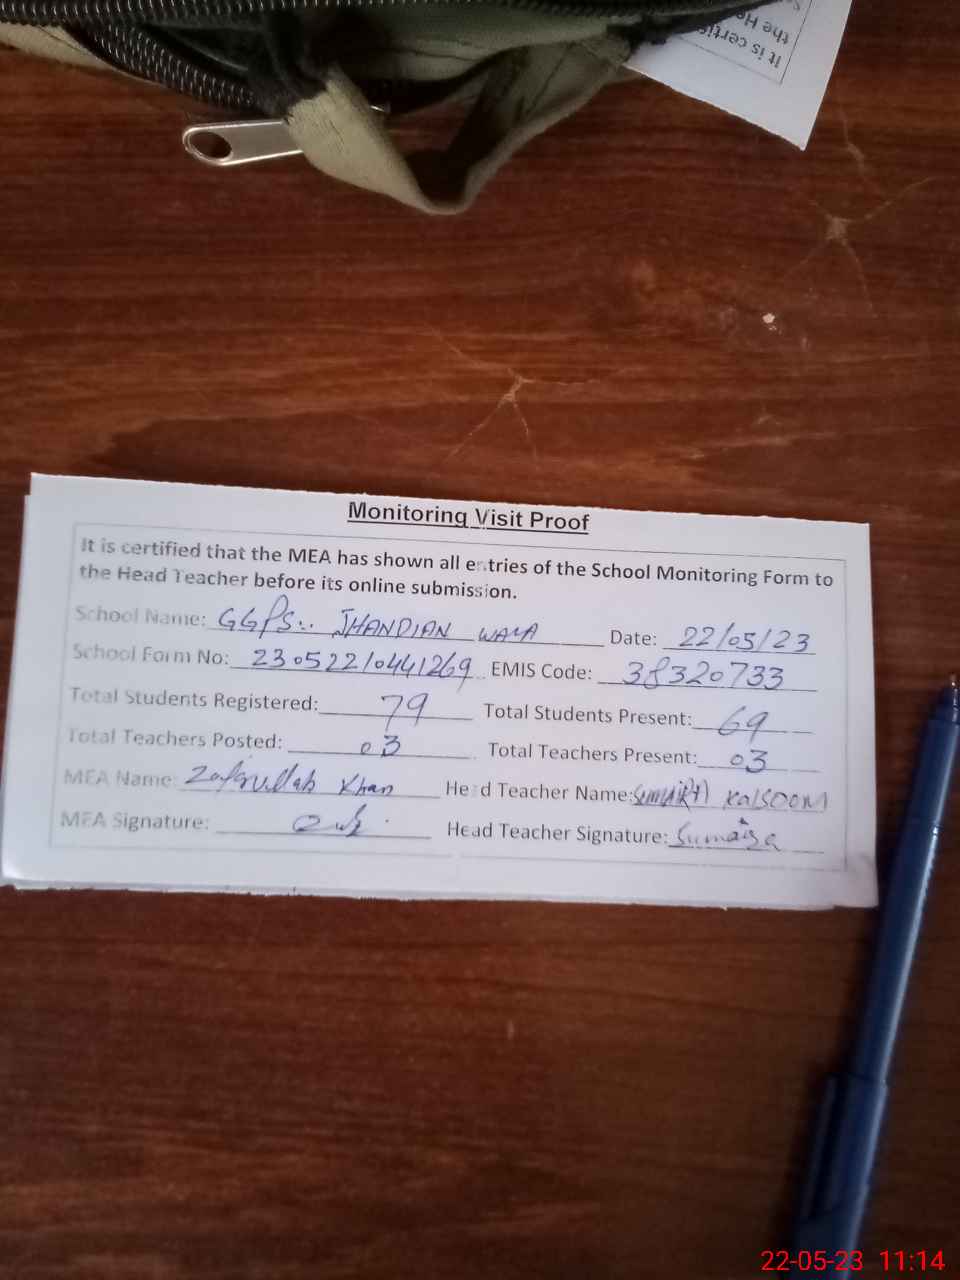 It is certi
the He
Monitoring Visit Proof
It is certified that the MEA has shown all entries of the School Monitoring Form to
the Head Teacher before its online submission.
School Name: GGPS.. JHANDIAN WALA Date: 22/05/23
School Form No: 23052210441269 EMIS Code: 38320733
Total Students Registered: 79 Total Students Present: 69
Total Teachers Posted: 03 Total Teachers Present: 03
MEA Name: Zafarullah Khan Head Teacher Name: KALSOOM
MEA Signature: Head Teacher Signature: Sumaira
22-05-23 11:14